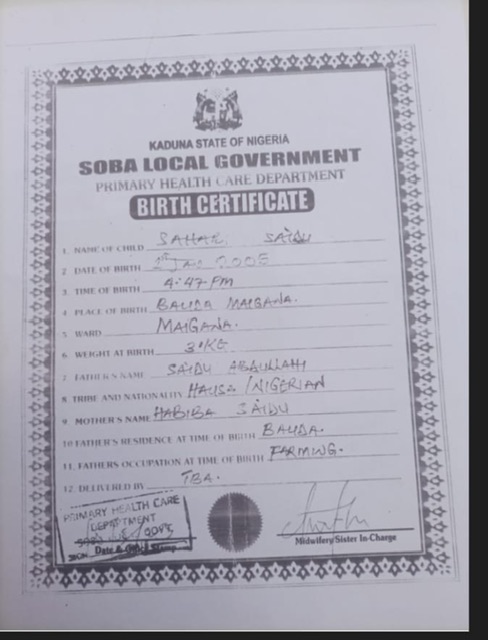 KADUNA STATE OF NIGERIA
SOBA LOCAL GOVERNMENT
PRIMARY HEALTH CARE DEPARTMENT
BIRTH CERTIFICATE
1. NAME OF CHILD SAHAR SAIDU
2 DATE OF BIRTH
3. TIME OF BIRTH 4:47 PM
4 PLACE OF BIRTH BAUDA MAIGANA.
5. WARD MAIGANA.
6. WEIGHT AT BIRTH 3KG
7 FATHER'S NAME SAIDU ABDULLAHI
8 TRIBE AND NATIONALITY HAUSA/NIGERIAN
9. MOTHER'S NAME HABIBA SAIDU
10 FATHER'S RESIDENCE AT TIME OF BIRTH BAUDA.
11. FATHERS OCCUPATION AT TIME OF BIRTH FARMING.
12. DELIVERED BY TBA.
PRIMARY HEALTH CARE
DEPARTMENT
Date & Stamp
Midwifery/Sister In-Charge